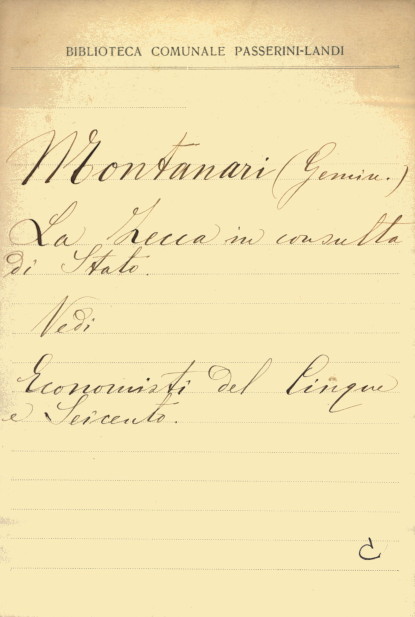 BIBLIOTECA COMUNALE PASSERINI-LANDI
Montanari (Gemin.)
La Zecca in consulta
di Stato.
Vedi
Economisti del Cinque
e Seicento.
C